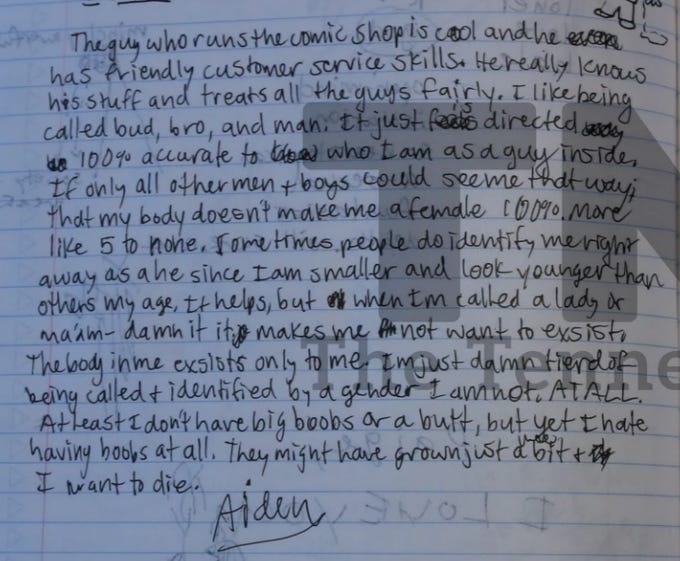 The guy who runs the comic shop is cool and he
has friendly customer service skills. He really knows
his stuff and treats all the guys fairly. I like being
called bud, bro, and man. It just is directed
100% accurate to who I am as a guy inside.
If only all other men + boys could see me that way;
that my body doesn't make me a female 100%. More
like 5 to none. Sometimes people do identify me right
away as a he since I am smaller and look younger than
others my age. It helps, but when I'm called a lady or
ma'am- damn it it makes me not want to exsist.
The body in me exsists only to me. I'm just damn tierd of
being called + identified by a gender I am not. AT ALL.
At least I don't have big boobs or a butt, but yet I hate
having boobs at all. They might have grown just a bit +
I want to die.
Aiden
TN
The Tenne